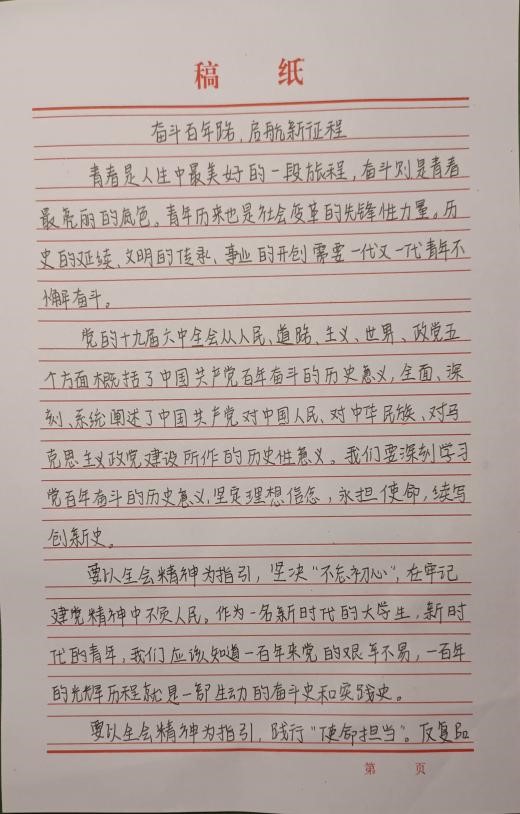 稿 纸
奋斗百年路,启航新征程
青春是人生中最美好的一段旅程,奋斗则是青春
最亮丽的底色。青年历来也是社会变革的先锋性力量。历
史的延续、文明的传承、事业的开创需要一代又一代青年不
懈奋斗。
党的十九届六中全会从人民、道路、主义、世界、政党五
个方面概括了中国共产党百年奋斗的历史意义,全面、深
刻、系统阐述了中国共产党对中国人民、对中华民族、对马
克思主义政党建设所作的历史性意义。我们要深刻学习
党百年奋斗的历史意义,坚定理想信念,永担使命,续写
创新史。
要以全会精神为指引,坚决“不忘初心”,在牢记
建党精神中不负人民。作为一名新时代的大学生,新时
代的青年,我们应该知道一百年来党的艰辛不易,一百年
的光辉历程就是一部生动的奋斗史和实践史。
要以全会精神为指引,践行“使命担当”。反复
第 页